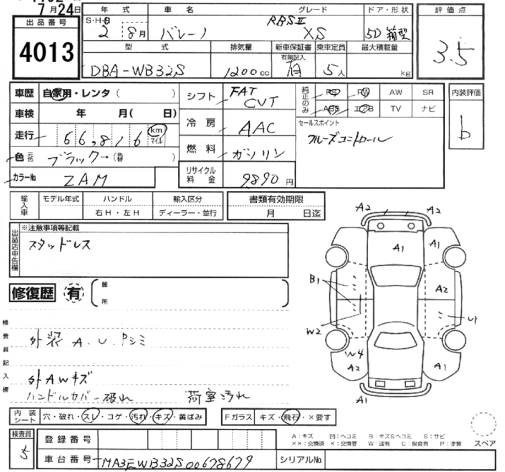 7月24日
出品番号
4013
年式 車名 グレード ドア・形状 評価点
S・H・R
2 8月 バレーノ RBS Ⅱ XS 5D 箱型 3.5
型式 排気量 新車保証書 乗車定員 最大積載量
有無記入
DBA-WB32S 1200cc 有 5人 kg
車歴 自家用・レンタ( ) シフト FAT CVT 純正のみ PS PW AW SR 内装評価
車検 年 月( 日) ABS エアB TV ナビ b
走行 66,816 km マイル 冷房 AAC セールスポイント
クルーズコントロール
色 ブラック 燃料 ガソリン
カラーNo ZAM リサイクル料金 9890円
輸入車 モデル年式 ハンドル 輸入区分 書類有効期限
右H・左H ディーラー・並行 月 日迄
出品店申告欄 ※注意事項等記載
スタッドレス
修復歴 有 箇所
検査員記入欄
外装 A.U.
外AWキズ
ハンドルカバー破れ 荷室汚れ
A2 A2
A1
A2 A1 A2
B1
U1
W2
W4
A2 A1 A2
内装シート 穴・破れ・スレ・コゲ・汚れ・キズ・黄ばみ Fガラス キズ・飛石・×要す
スペア
A:キズ U:凹ヘコミ B:キズ&ヘコミ S:サビ
検査員 5 登録番号
車台番号 MA3EWB32S00678679 シリアルNo